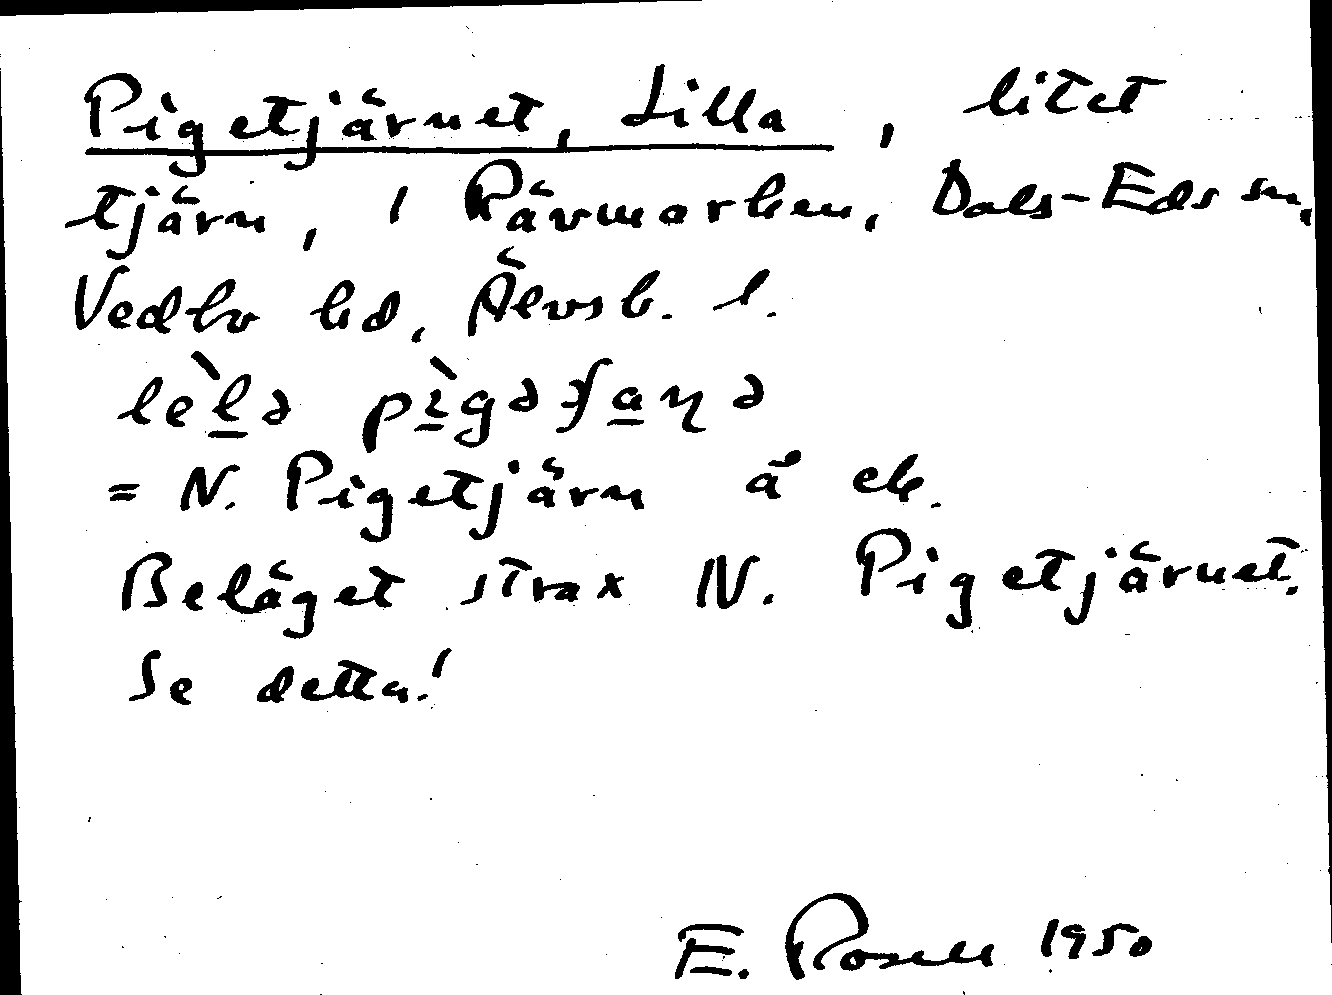 Pigetjärnet, Lilla, litet
tjärn, i Rävmarken, Dals-Eds sn,
Vedbo hd, Älvsb. l.
= N. Pigetjärn å ek.
Beläget strax N. Pigetjärnet.
Se detta!
E. Rosell 1950